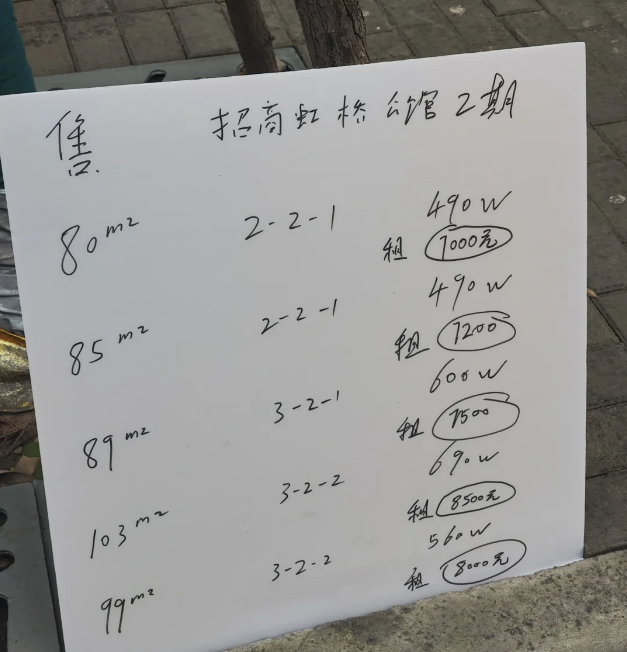 售 招商虹桥公馆2期
80m² 2-2-1 490W
租 7000元
85m² 2-2-1 490W
租 7200
89m² 3-2-1 600W
租 7500
103m² 3-2-2 690W
租 8500元
99m² 3-2-2 560W
租 8000元